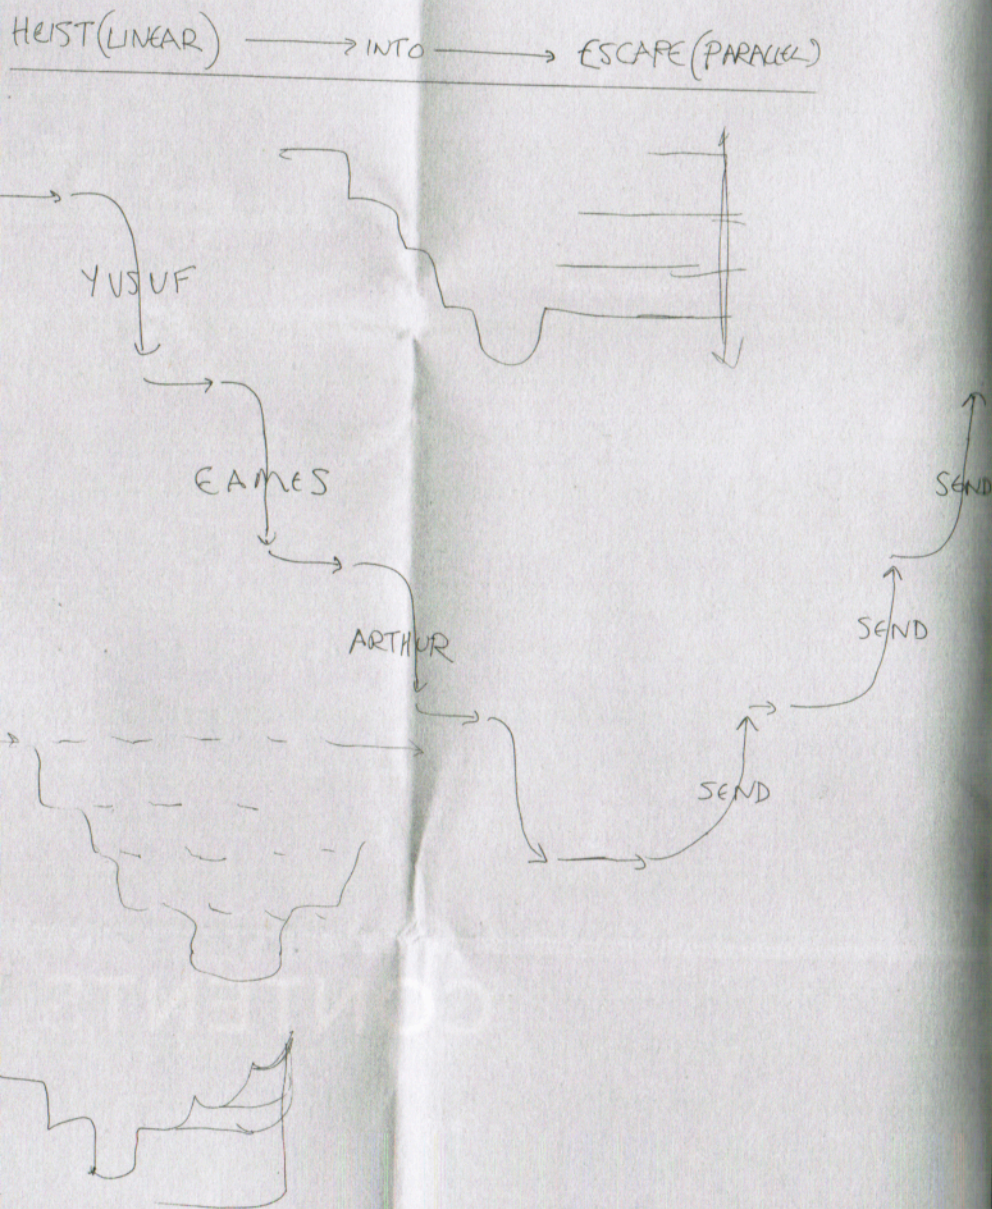 HEIST (LINEAR) → INTO → ESCAPE (PARALLEL)
YUSUF
EAMES
SEND
ARTHUR
SEND
SEND
CONTENTS